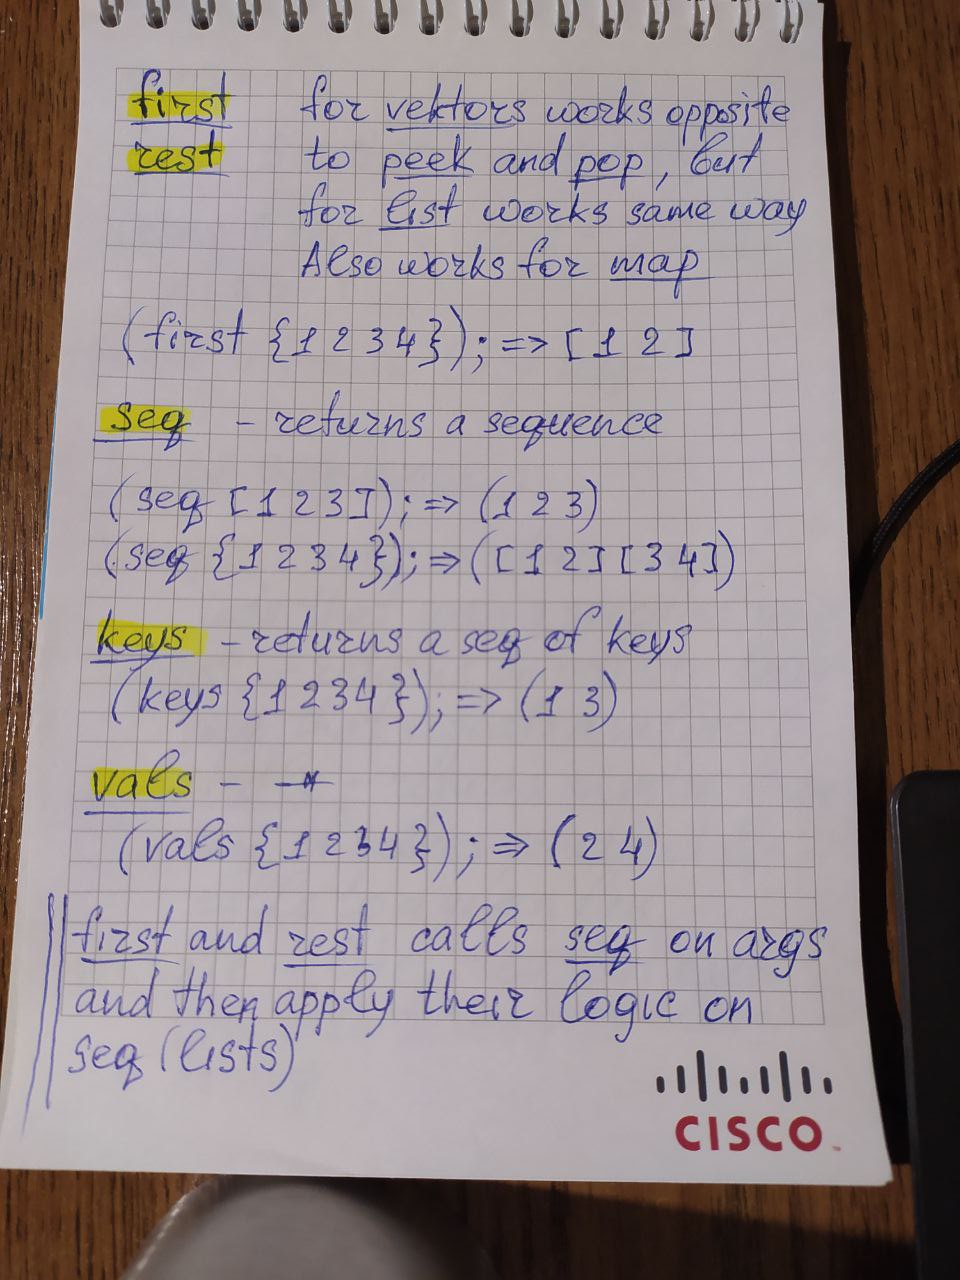 first for vektors works opposite
rest to peek and pop, but
for list works same way
Also works for map
(first {1 2 3 4}); => [1 2]
seq - returns a sequence
(seq [1 2 3]); => (1 2 3)
(seq {1 2 3 4}); => ([1 2] [3 4])
keys - returns a seq of keys
(keys {1 2 3 4}); => (1 3)
vals -
(vals {1 2 3 4}); => (2 4)
first and rest calls seq on args
and then apply their logic on
seq (lists)
CISCO